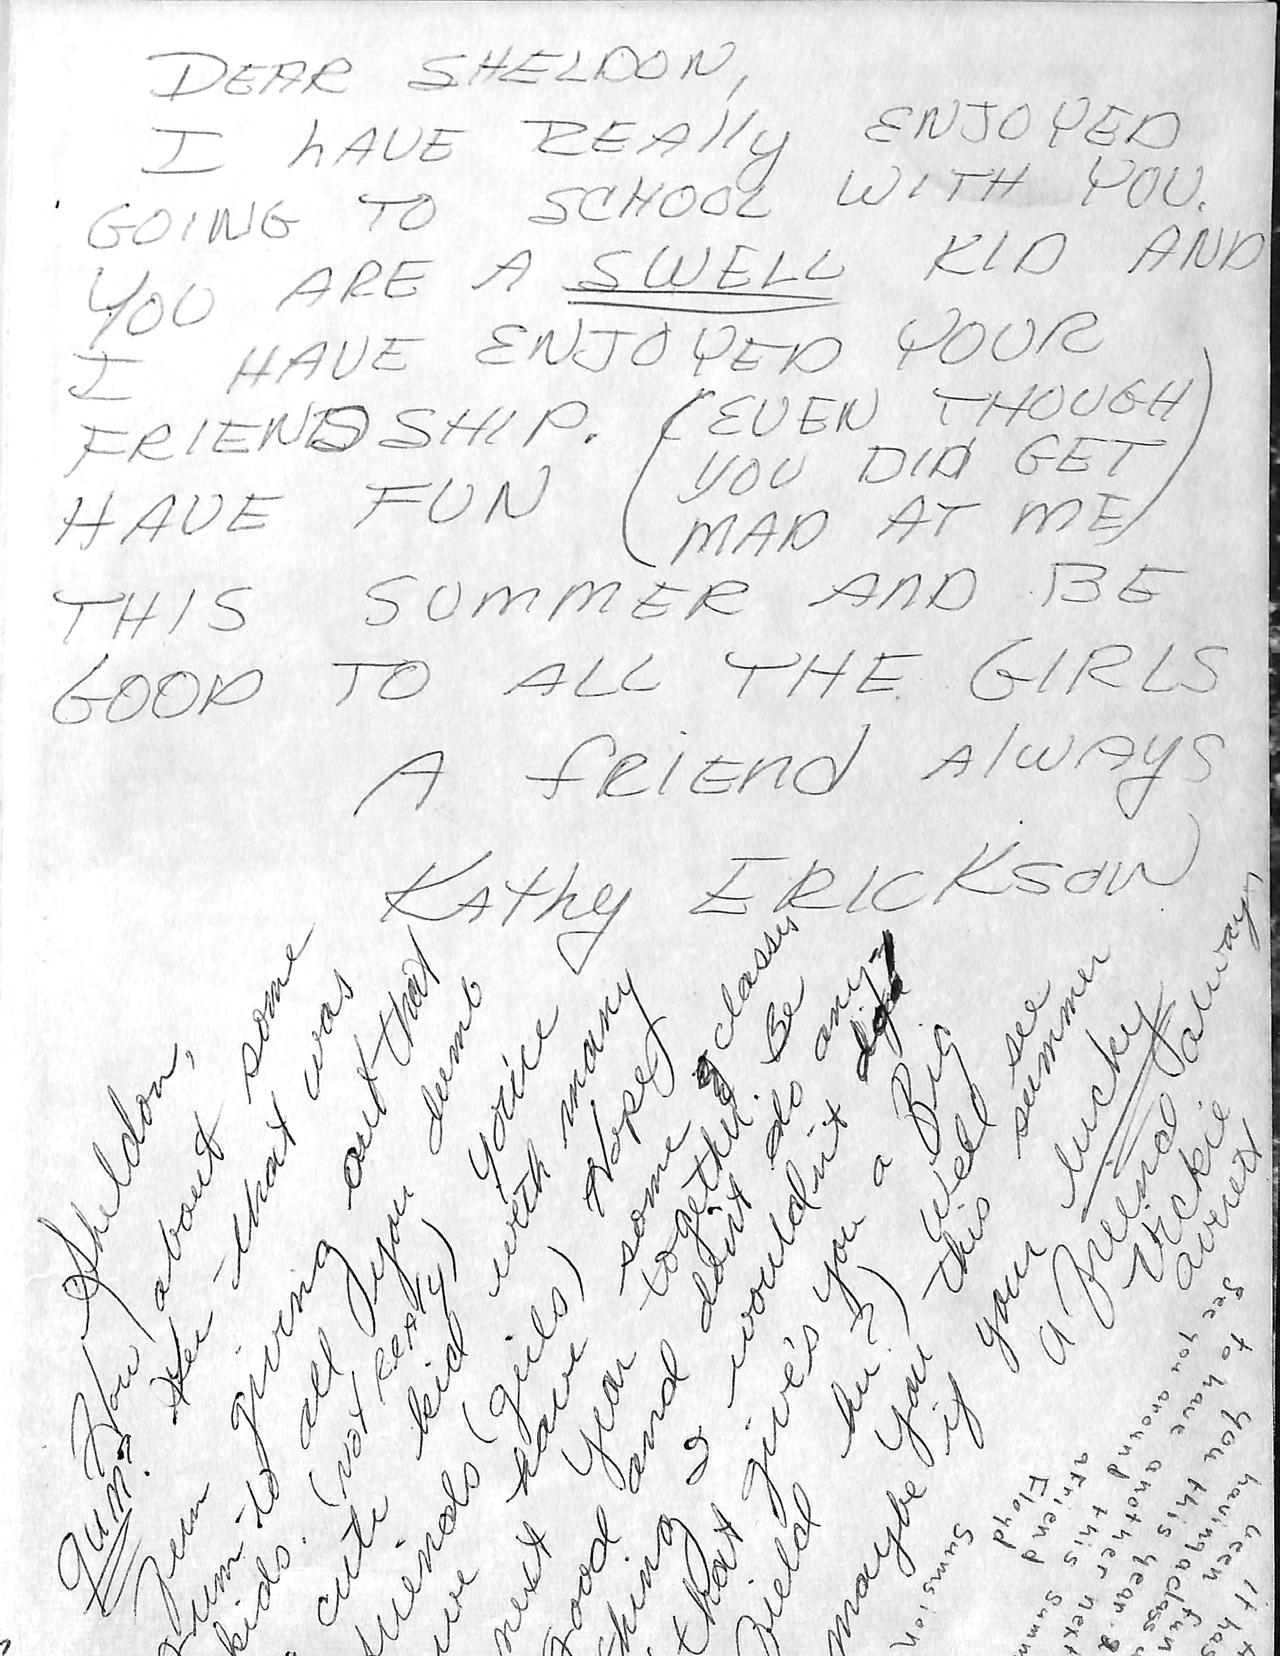 DEAR SHELDON,
I hAVE REAlly ENJOYED
GOING TO SCHOOL WITH YOU.
YOU ARE A SWELL KID AND
I HAVE ENJOYED YOUR
FRIENDSHIP. (EVEN THOUGH
YOU DID GET
MAD AT ME)
HAVE FUN
THIS SUMMER AND BE
GOOD TO ALL THE GIRLS
A friend Always
KAthy ERICKSON
Sheldon,
How about some
gum? Hey that was
fun giving out that
gum to all you dumb
kids. (NOT REALY) You're
a cute kid with many
friends (girls) Hope
we have some classes
next year together. Be
good and don't do any-
thing I wouldn't
that give's you a Big
Field hu?) Well
maybe you this see
if summer
your lucky
a Friend always
Vickie
averett
It has
been fun
having a class
you this year.
to have another next
See you around this summ
a friend
Floyd
Sumsion